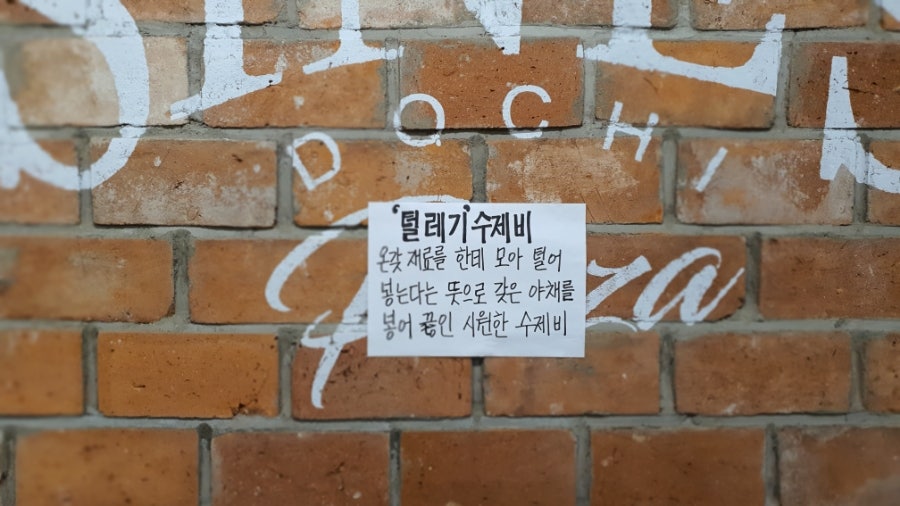 DOCHI
'털레기' 수제비
온갖 재료를 한데 모아 털어
넣는다는 뜻으로 갖은 야채를
넣어 끓인 시원한 수제비